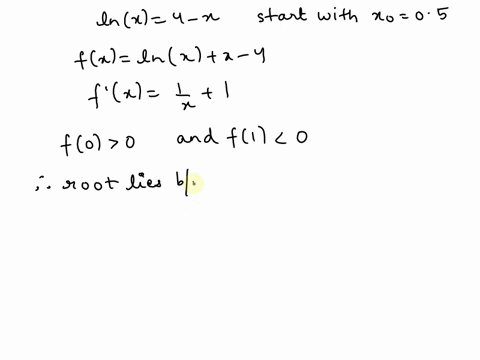 ln(x) = 4 - x start with x₀ = 0.5
f(x) = ln(x) + x - 4
f'(x) = 1/x + 1
f(0) > 0 and f(1) < 0
∴ root lies b/